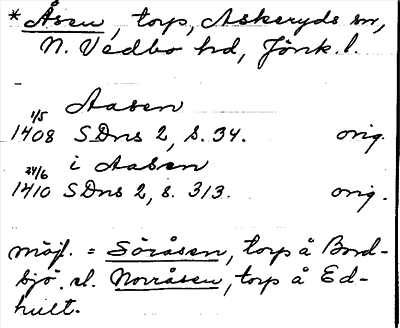 * Åsen, torp, Askeryds sn,
N. Vedbo hd, Jönk. l.
Aasen
1/5
1408 SDns 2, s. 34. orig.
i Aasen
24/6
1410 SDns 2, s. 313. orig.
möjl. = Söråsen, torp å Bord-
sjö, el. Norråsen, torp å Ed-
hult.